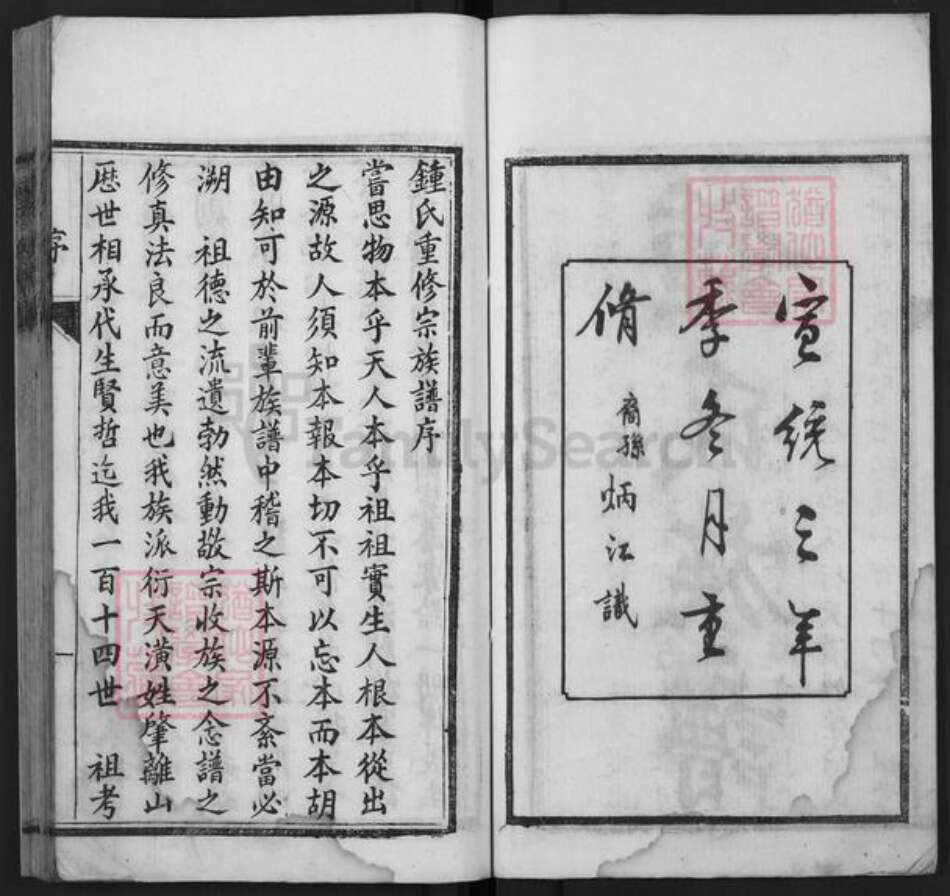 宣統三年
季冬月重
脩
裔孫炳江識
鍾氏重修宗族譜序
嘗思物本乎天人本乎祖祖實生人根本從出
之源故人須知本報本切不可以忘本而本胡
由知可於前輩族譜中稽之斯本源不紊當必
溯　祖德之流遺勃然動敬宗收族之念譜之
修真法良而意美也我族派衍天潢姓肇離山
歷世相承代生賢哲迄我一百十四世　祖考
序
一
FamilySearch